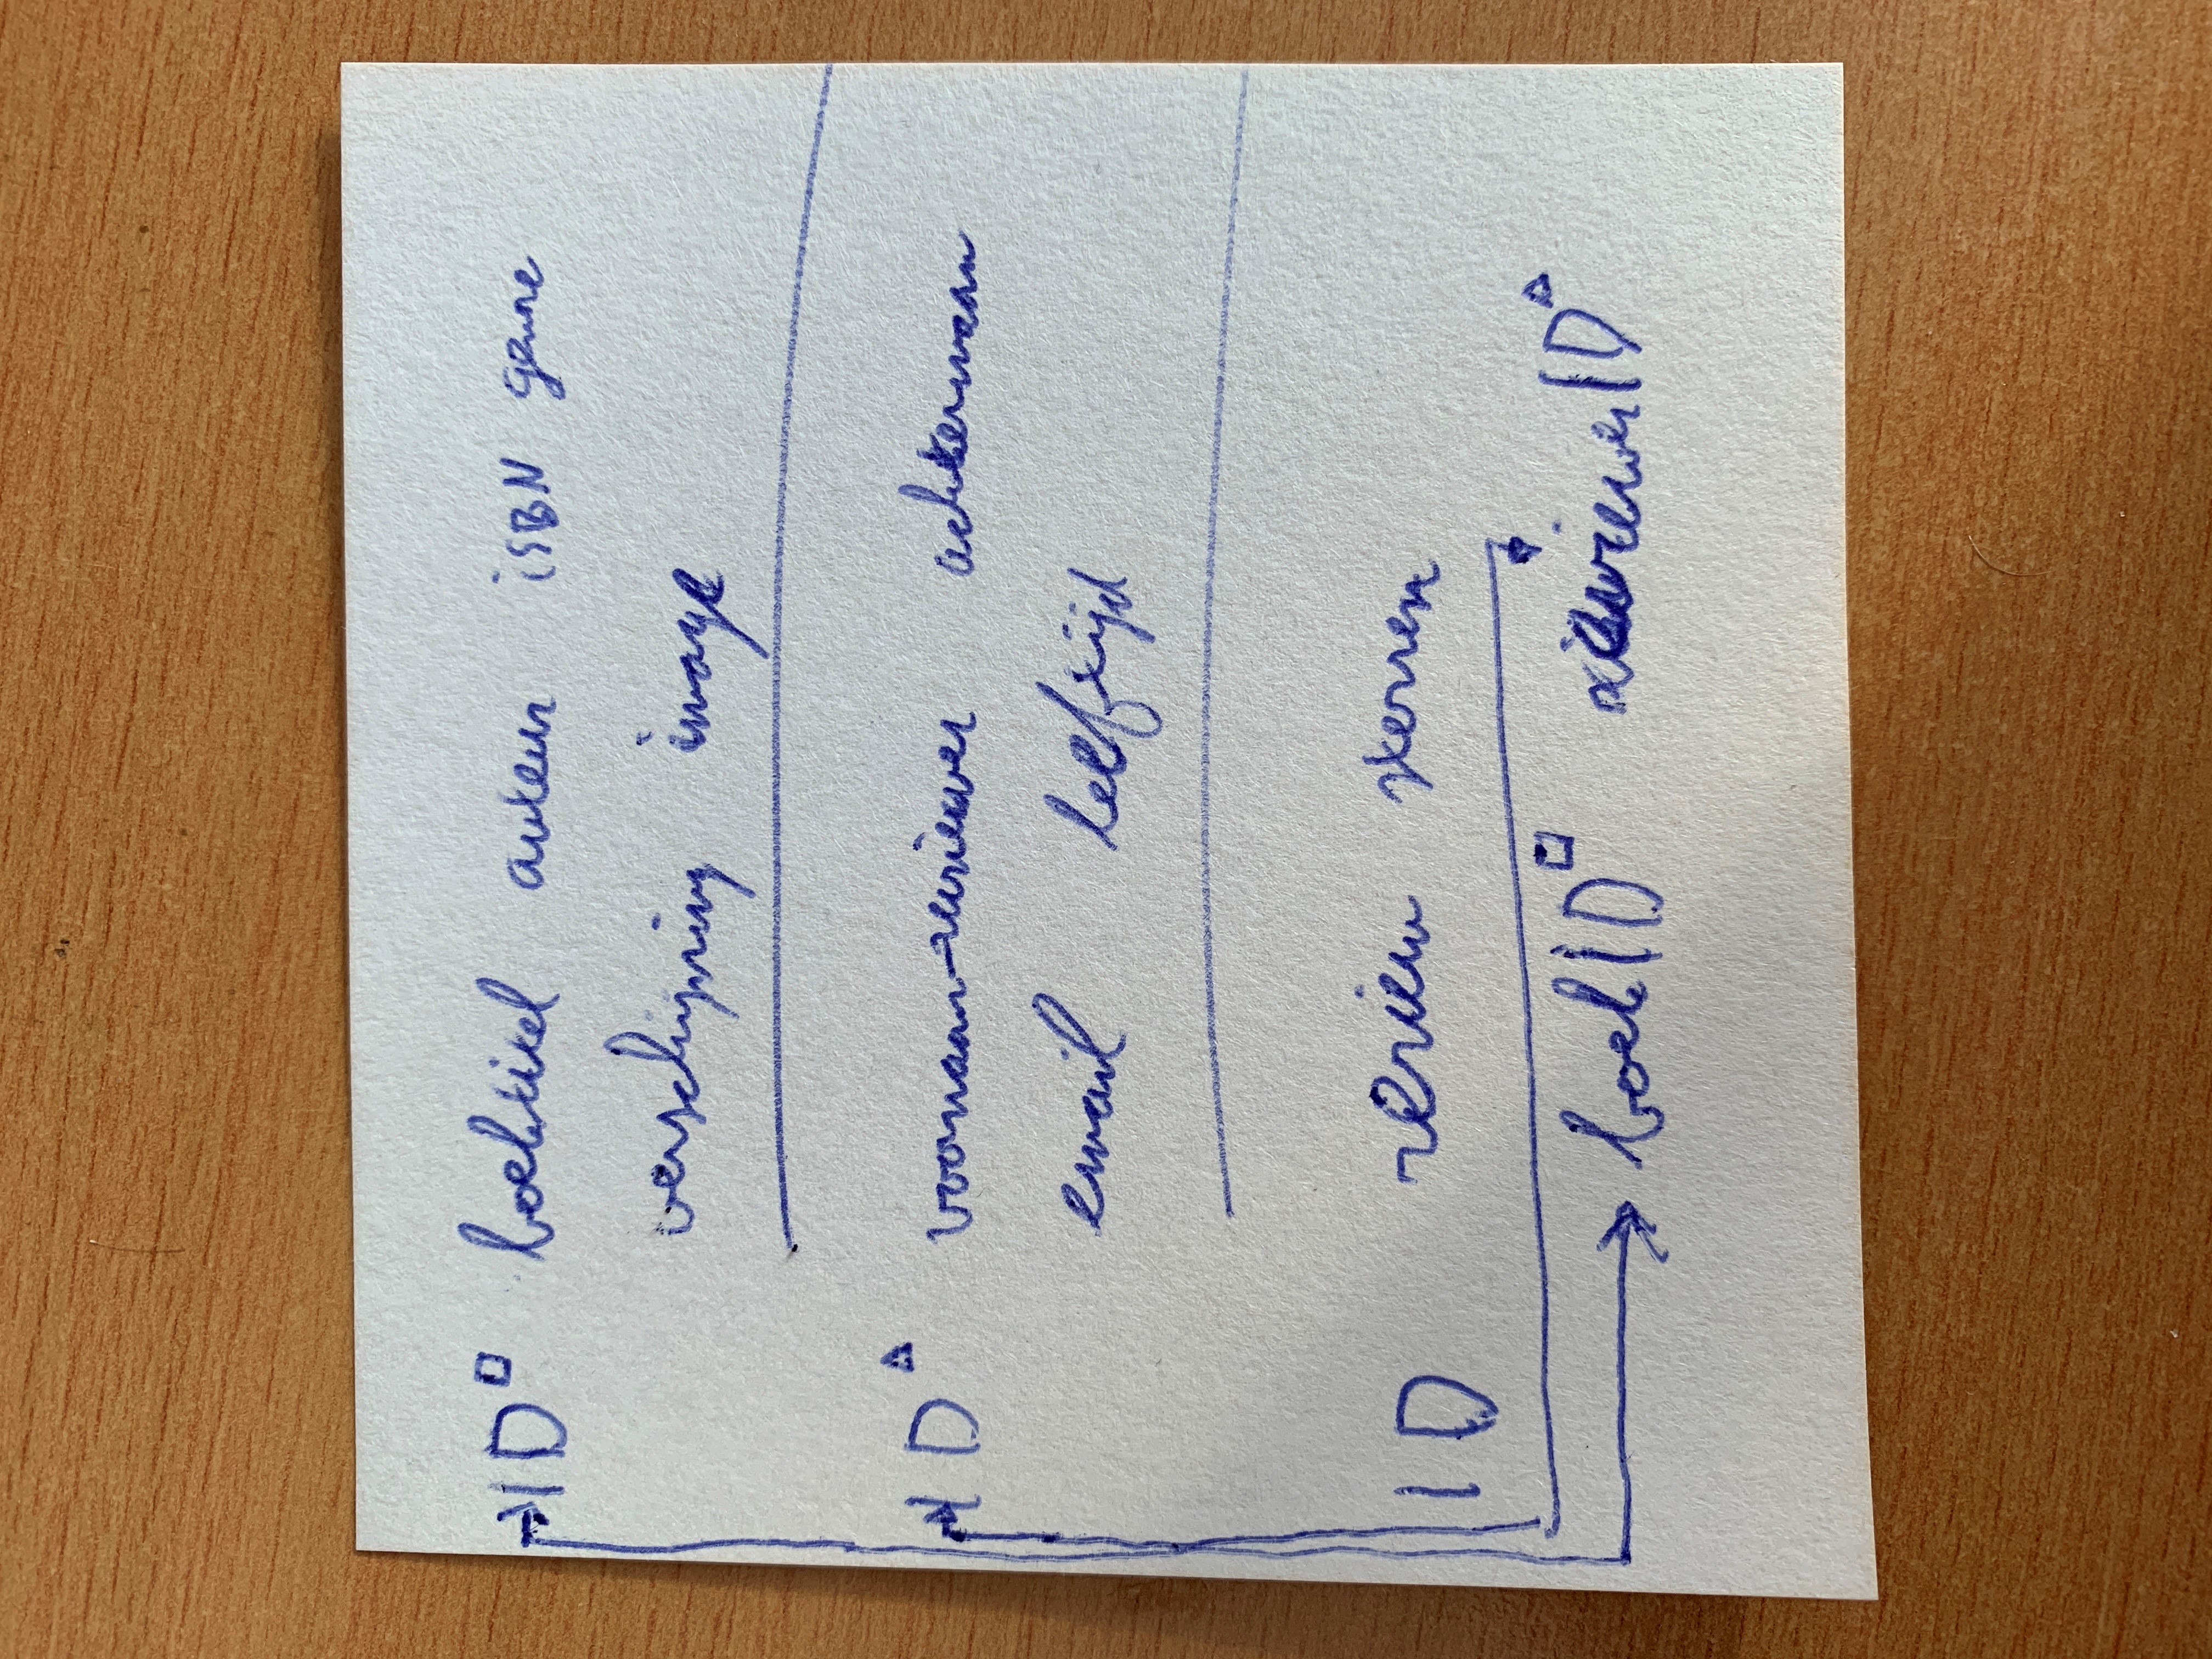 ID□ boektitel auteur iSBN genre
verschijning image
ID△ voornaam-reviewer achternaam
email leeftijd
ID review sterren
boekID□ reviewerID△